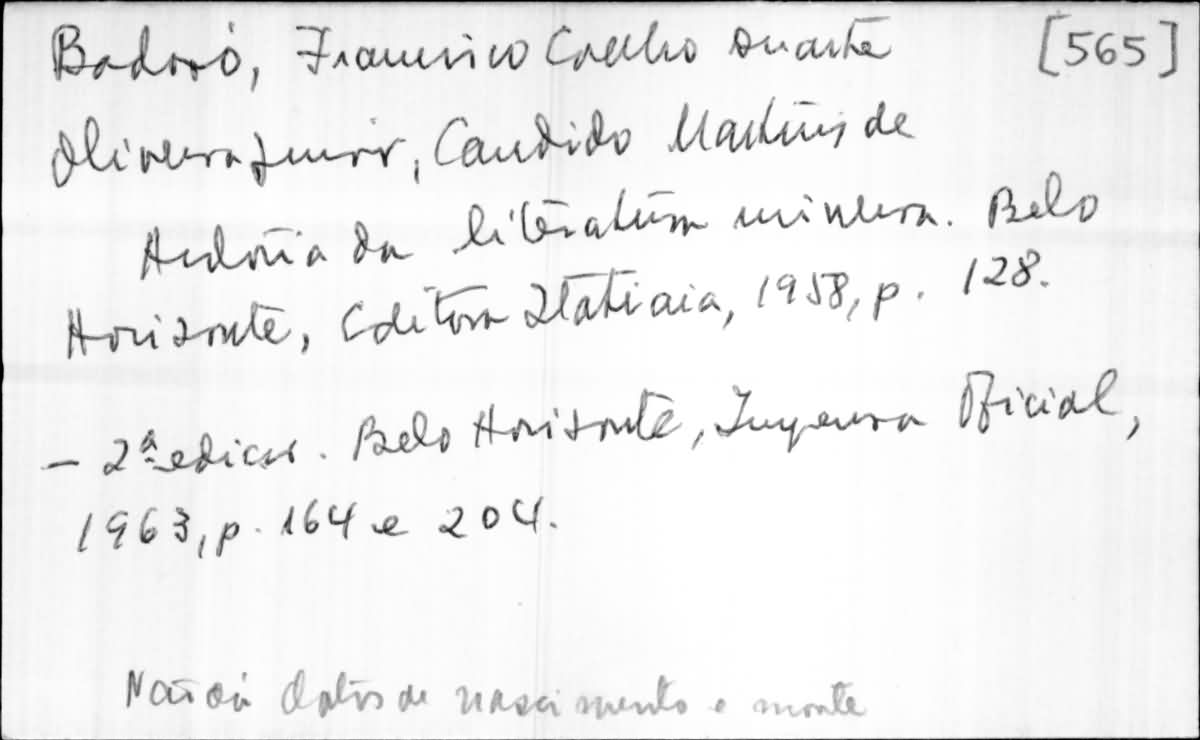 Badaró, Francisco Coelho Duarte [565]
Oliveira Junior, Candido Martins de
História da literatura mineira. Belo
Horizonte, Editora Itatiaia, 1958, p. 128.
— 2ª edição. Belo Horizonte, Imprensa Oficial,
1963, p. 164 e 204.
Não dá datas de nascimento e morte